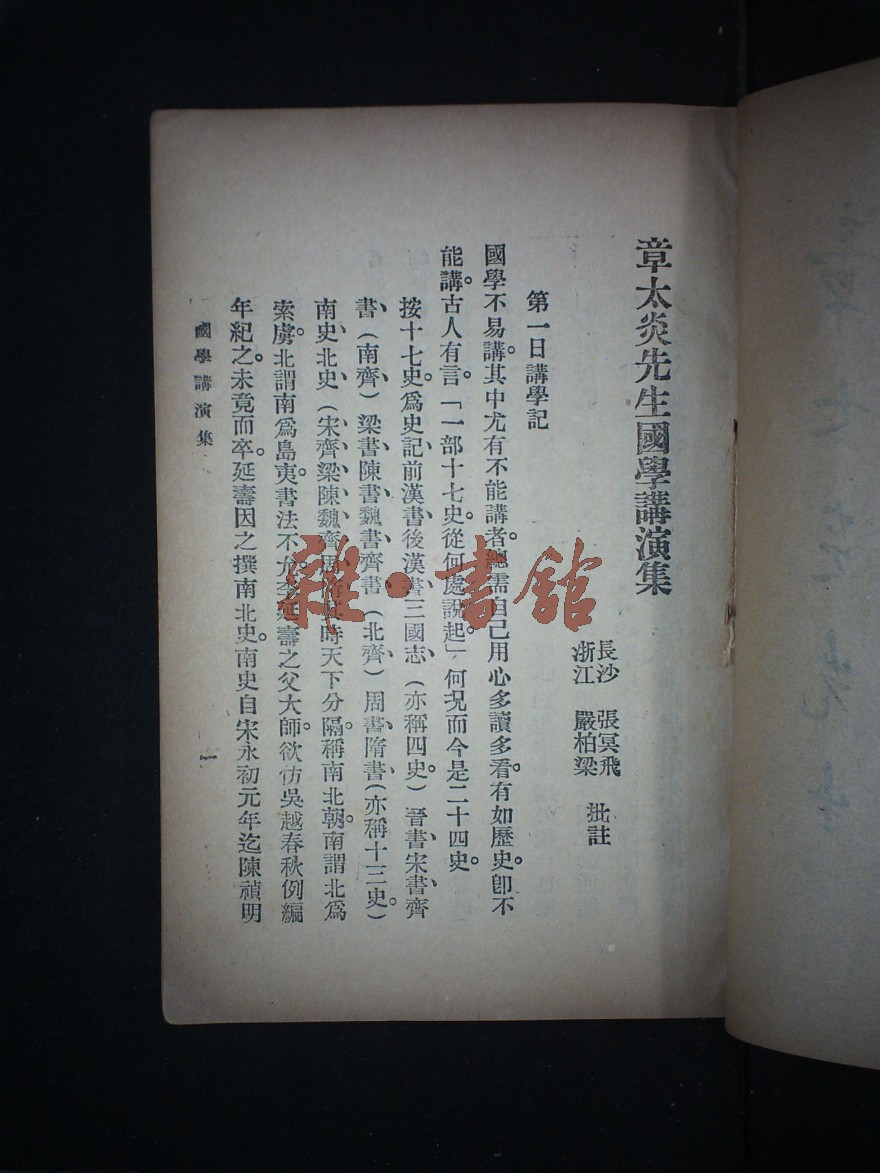 章太炎先生國學講演集
長沙 張冥飛
浙江 嚴柏梁 批註
第一日講學記
國學不易講。其中尤有不能講者。總需自己用心多讀多看。有如歷史。卽不
能講。古人有言。「一部十七史。從何處說起。」何况而今是二十四史。
按十七史。爲史記、前漢書、後漢書、三國志、(亦稱四史。)晉書、宋書、齊
書、(南齊)梁書、陳書、魏書、齊書、(北齊)周書、隋書、(亦稱十三史。)
南史、北史、(宋、齊、梁、陳、魏、齊、周、時天下分隔。稱南北朝。南謂北爲
索虜。北謂南爲島夷。書法不允。李延壽之父大師。欲仿吳越春秋例編
年紀之。未竟而卒。延壽因之撰南北史。南史自宋永初元年迄陳禎明
國學講演集
一
雜·書館